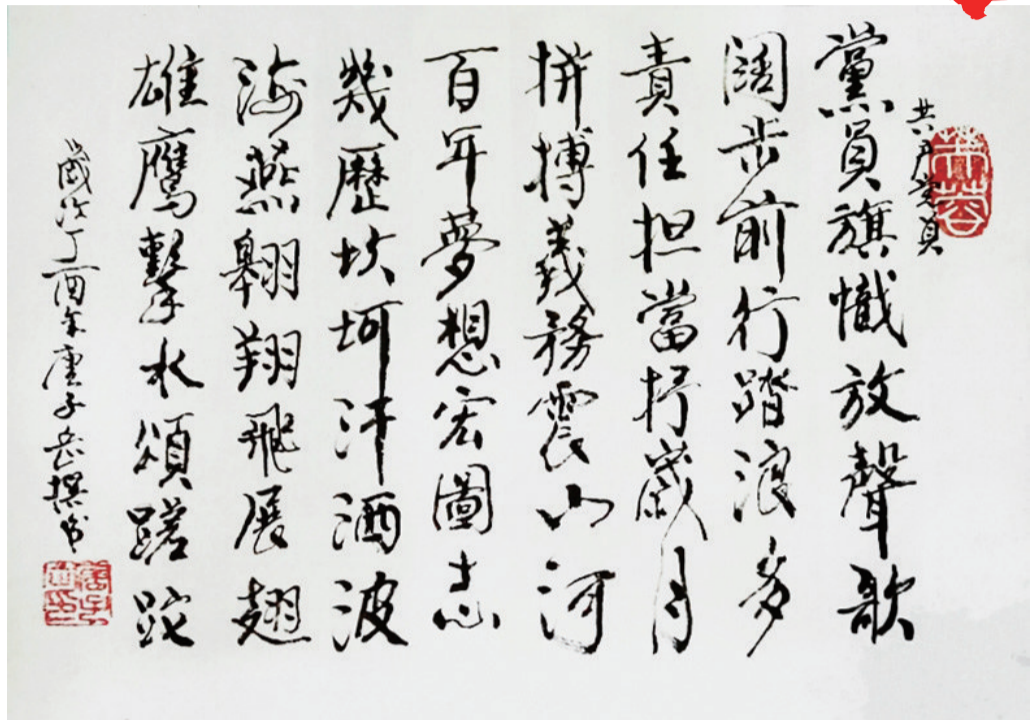 共产党員
黨員旗幟放聲歌
阔步前行踏浪多
責任担當抒歲月
拼搏義務震山河
百年夢想宏圖志
幾歷坎坷汗洒波
海燕翱翔飛展翅
雄鹰擊水頌蹉跎
歲次丁酉年唐子岳撰书